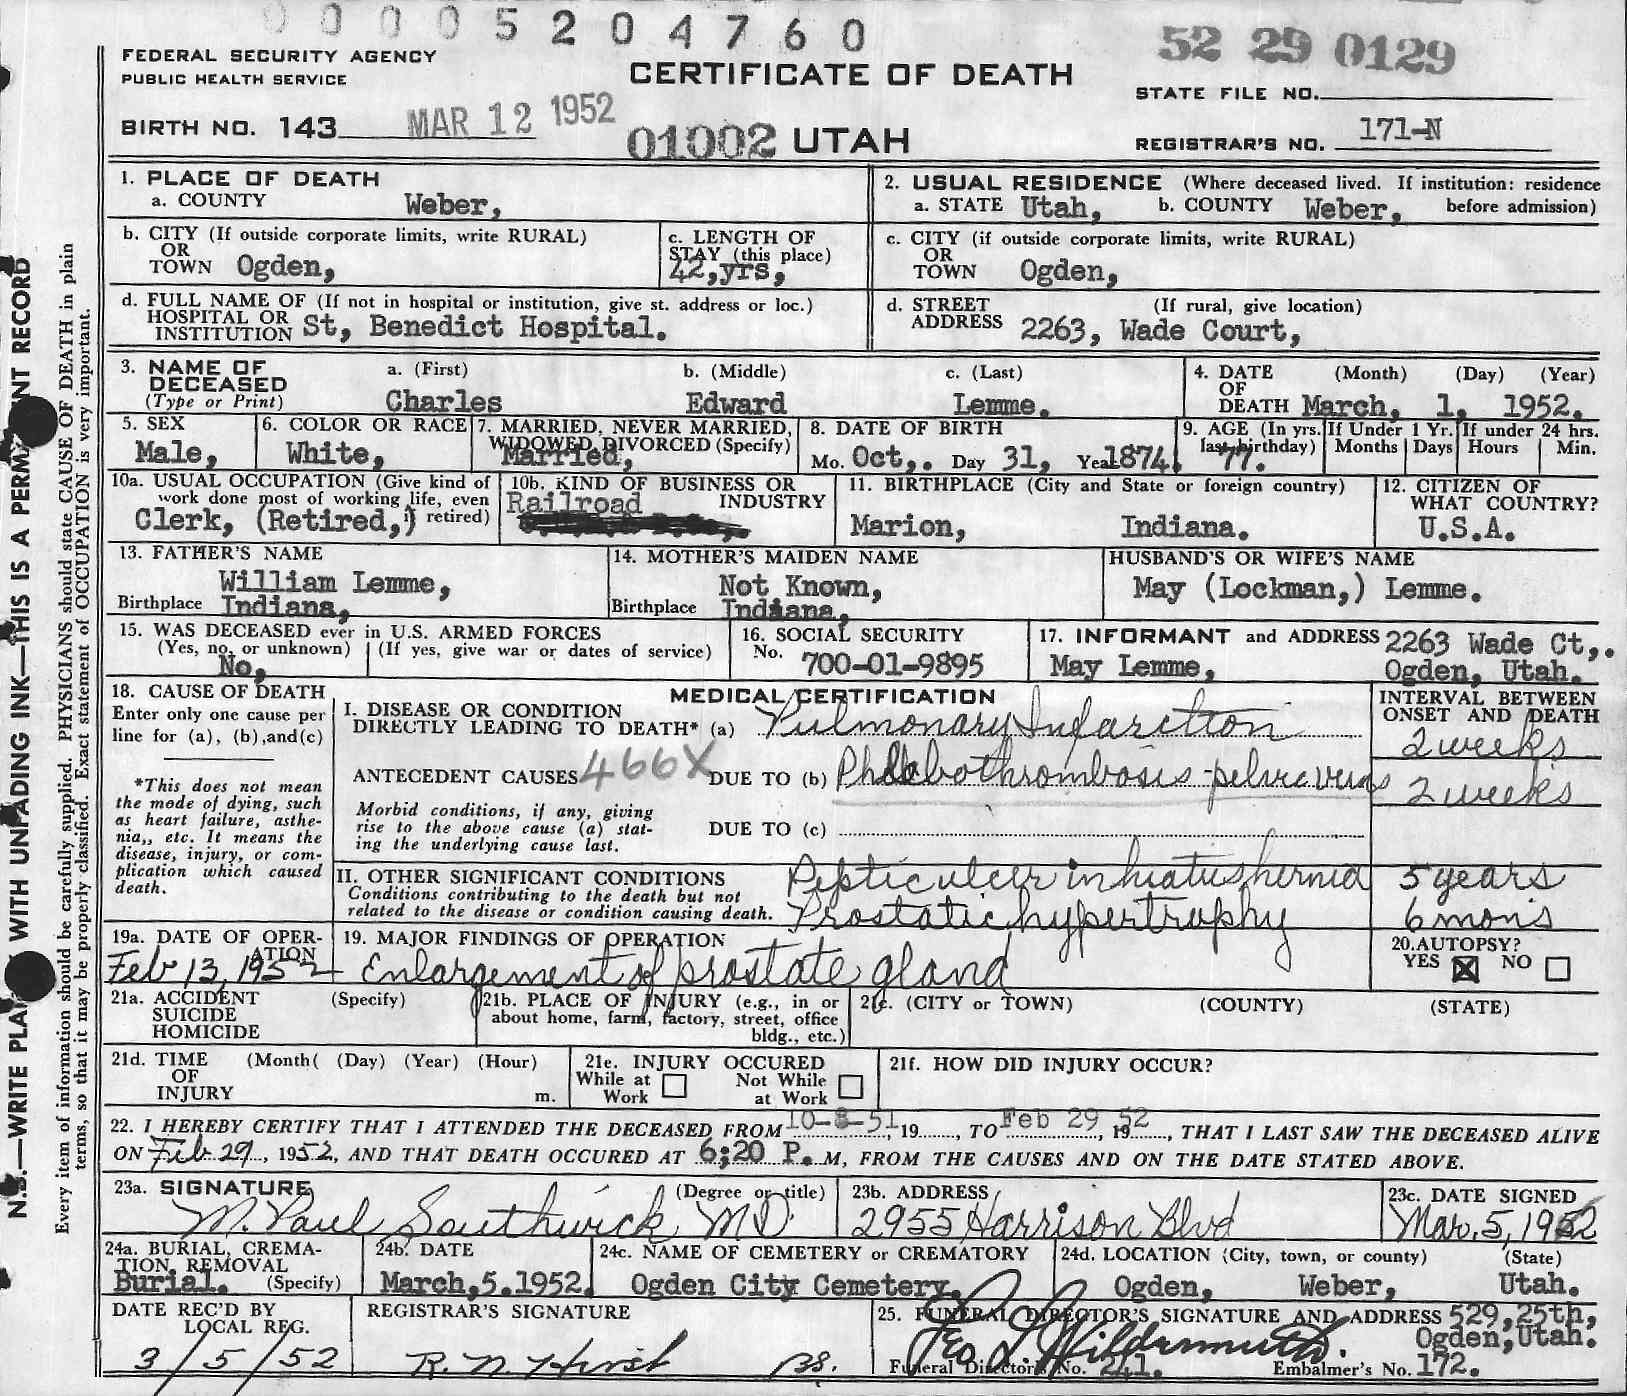 0 0 0 0 5 2 0 4 7 6 0
52 29 0129
FEDERAL SECURITY AGENCY
PUBLIC HEALTH SERVICE
CERTIFICATE OF DEATH
STATE FILE NO.
BIRTH NO. 143 MAR 12 1952
01002 UTAH
REGISTRAR'S NO. 171-N
N.B.—WRITE PLAI WITH UNFADING INK—THIS IS A PERMA NT RECORD
Every item of information should be carefully supplied. PHYSICIANS should state CAUSE OF DEATH in plain
terms, so that it may be properly classified. Exact statement of OCCUPATION is very important.
1. PLACE OF DEATH
a. COUNTY Weber,
2. USUAL RESIDENCE (Where deceased lived. If institution: residence
a. STATE Utah, b. COUNTY Weber, before admission)
b. CITY (If outside corporate limits, write RURAL)
OR
TOWN Ogden,
c. LENGTH OF
STAY (this place)
42,yrs,
c. CITY (if outside corporate limits, write RURAL)
OR
TOWN Ogden,
d. FULL NAME OF (If not in hospital or institution, give st. address or loc.)
HOSPITAL OR
INSTITUTION St, Benedict Hospital.
d. STREET (If rural, give location)
ADDRESS 2263, Wade Court,
3. NAME OF DECEASED
(Type or Print)
a. (First) b. (Middle) c. (Last)
Charles Edward Lemme.
4. DATE (Month) (Day) (Year)
OF
DEATH March, 1, 1952.
5. SEX
Male,
6. COLOR OR RACE
White,
7. MARRIED, NEVER MARRIED,
WIDOWED, DIVORCED (Specify)
Married,
8. DATE OF BIRTH
Mo. Oct,. Day 31, Year 1874.
9. AGE (In yrs. last birthday)
77.
If Under 1 Yr.
Months Days
If under 24 hrs.
Hours Min.
10a. USUAL OCCUPATION (Give kind of
work done most of working life, even
if retired)
Clerk, (Retired,)
10b. KIND OF BUSINESS OR
INDUSTRY
Railroad
11. BIRTHPLACE (City and State or foreign country)
Marion, Indiana.
12. CITIZEN OF
WHAT COUNTRY?
U.S.A.
13. FATHER'S NAME
William Lemme,
Birthplace Indiana,
14. MOTHER'S MAIDEN NAME
Not Known,
Birthplace Indiana,
HUSBAND'S OR WIFE'S NAME
May (Lockman,) Lemme.
15. WAS DECEASED ever in U.S. ARMED FORCES
(Yes, no, or unknown) (If yes, give war or dates of service)
No,
16. SOCIAL SECURITY
No. 700-01-9895
17. INFORMANT and ADDRESS 2263 Wade Ct,.
May Lemme, Ogden, Utah.
18. CAUSE OF DEATH
Enter only one cause per
line for (a), (b),and(c)
*This does not mean
the mode of dying, such
as heart failure, asthe-
nia,, etc. It means the
disease, injury, or com-
plication which caused
death.
MEDICAL CERTIFICATION
I. DISEASE OR CONDITION
DIRECTLY LEADING TO DEATH* (a) Pulmonary Infarction
INTERVAL BETWEEN
ONSET AND DEATH
2 weeks
ANTECEDENT CAUSES 466X DUE TO (b) Phlebothrombosis - pelvic veins 2 weeks
Morbid conditions, if any, giving
rise to the above cause (a) stat-
ing the underlying cause last.
DUE TO (c)
II. OTHER SIGNIFICANT CONDITIONS
Conditions contributing to the death but not
related to the disease or condition causing death.
Peptic ulcer in hiatus hernia 5 years
Prostatic hypertrophy 6 mon's
19a. DATE OF OPER-
ATION
Feb 13, 1952
19. MAJOR FINDINGS OF OPERATION
Enlargement of prostate gland
20. AUTOPSY?
YES ☒ NO ☐
21a. ACCIDENT (Specify)
SUICIDE
HOMICIDE
21b. PLACE OF INJURY (e.g., in or
about home, farm, factory, street, office
bldg., etc.)
21c. (CITY or TOWN) (COUNTY) (STATE)
21d. TIME (Month( (Day) (Year) (Hour)
OF
INJURY m.
21e. INJURY OCCURED
While at Work ☐ Not While at Work ☐
21f. HOW DID INJURY OCCUR?
22. I HEREBY CERTIFY THAT I ATTENDED THE DECEASED FROM 10-8-51, 19, TO Feb 29, 1952, THAT I LAST SAW THE DECEASED ALIVE
ON Feb 29, 1952, AND THAT DEATH OCCURED AT 6;20 P. M, FROM THE CAUSES AND ON THE DATE STATED ABOVE.
23a. SIGNATURE (Degree or title)
M. Paul Southwick MD
23b. ADDRESS
2955 Harrison Blvd
23c. DATE SIGNED
Mar. 5, 1952
24a. BURIAL, CREMA-
TION, REMOVAL
Burial. (Specify)
24b. DATE
March,5.1952.
24c. NAME OF CEMETERY or CREMATORY
Ogden City Cemetery.
24d. LOCATION (City, town, or county) (State)
Ogden, Weber, Utah.
DATE REC'D BY
LOCAL REG.
3/5/52
REGISTRAR'S SIGNATURE
R. N. Hirst
25. FUNERAL DIRECTOR'S SIGNATURE AND ADDRESS 529,25th,
Ogden,Utah.
Geo L Wildermuth.
Funeral Director's No. 241. Embalmer's No. 172.